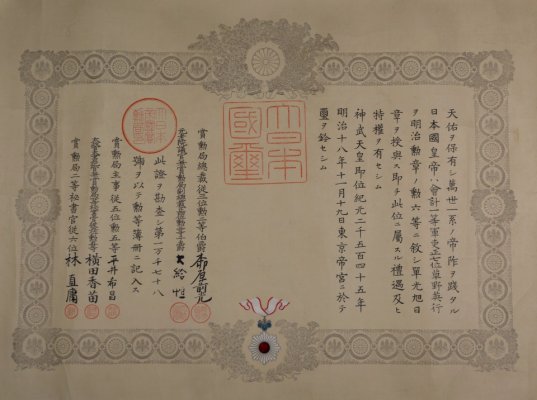 天佑ヲ保有シ萬世一系ノ帝祚ヲ踐タル
日本國皇帝ハ會計一等軍吏正七位草野奥行
ヲ明治勲章ノ勲六等ニ敘シ單光旭日
章ヲ授與ス即チ此位ニ屬スル禮遇及ヒ
特權ヲ有セシム
神武天皇即位紀元二千五百四十五年
明治十八年十一月十九日東京帝宮ニ於テ
璽ヲ鈐セシム
大日本
國璽
賞勲局總裁從三位勲一等伯爵
大給恒
此證ヲ勘査シ第一万千七十八
號ヲ以テ勲等簿冊ニ記入ス
賞勲局主事從五位勲五等平井希昌
横田香苗
賞勲局二等秘書官從六位林直庸